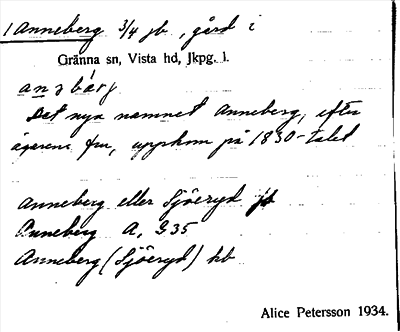 1 Anneberg 3/4 jb, gård i
Gränna sn, Vista hd, Jkpg. l.
an3bárj
Det nya namnet Anneberg, efter
ägarens fru, uppkom på 1830-talet
Anneberg eller Sjöeryd jb
Anneberg A, G35
Anneberg (Sjöeryd) hb
Alice Petersson 1934.